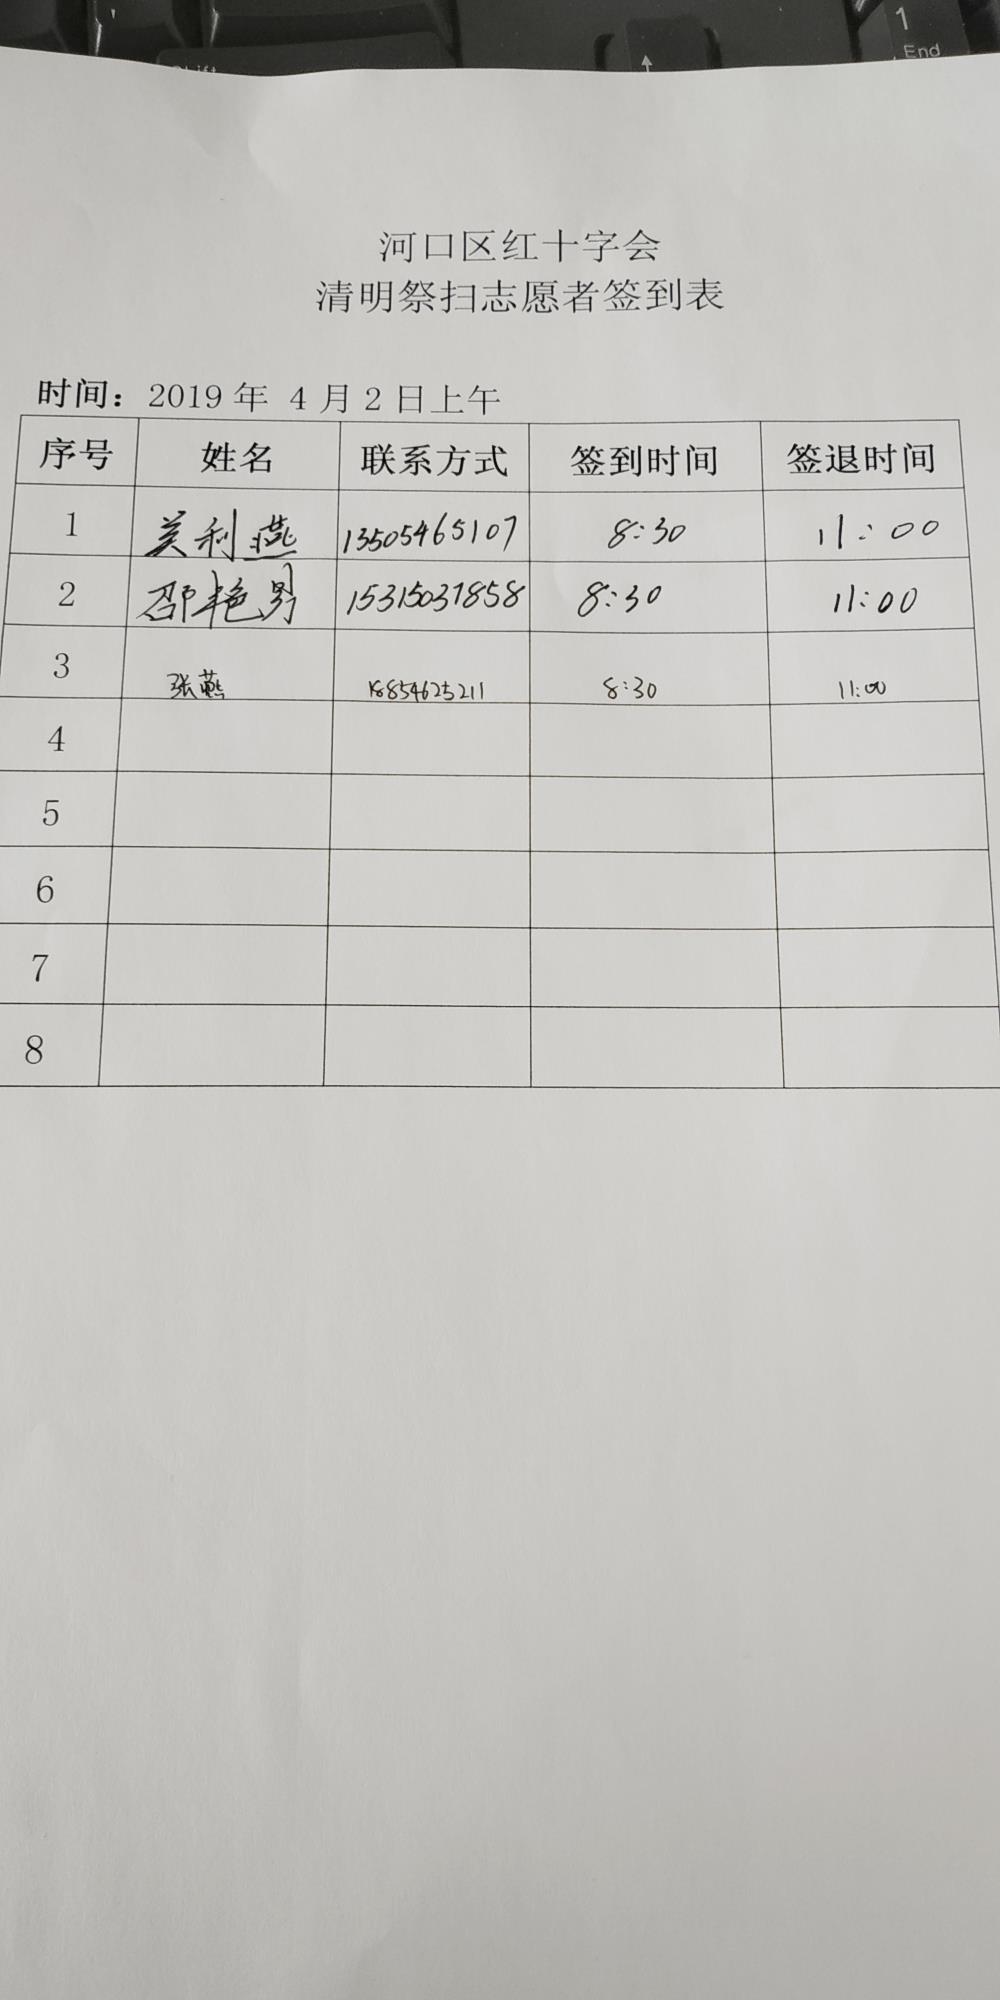 1
End
河口区红十字会
清明祭扫志愿者签到表
时间：2019 年 4 月 2 日上午
序号 姓名 联系方式 签到时间 签退时间
1 关利燕 13505465107 8:30 11:00
2 邵艳男 15315037858 8:30 11:00
3 张燕 18854625211 8:30 11:00
4
5
6
7
8